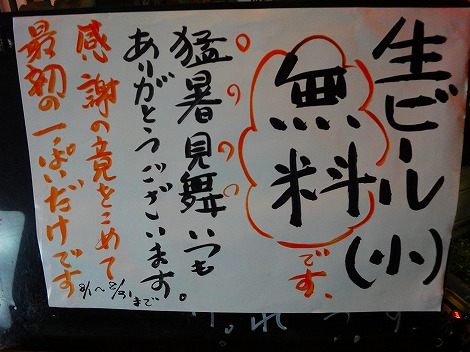 生ビール(小)
無料です、
猛暑見舞いつも
ありがとうございます。
感謝の意をこめて
最初の一ぱいだけです
8/1〜8/31まで